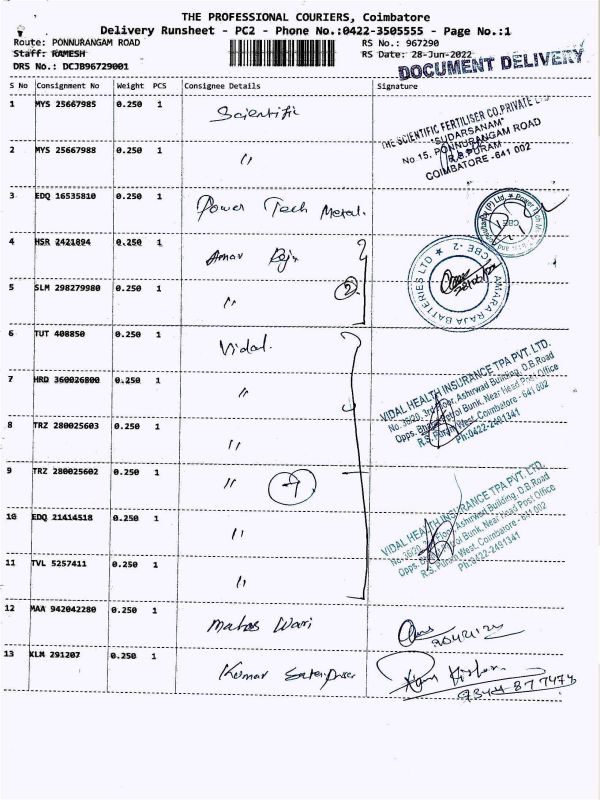 THE PROFESSIONAL COURIERS, Coimbatore
Delivery Runsheet - PC2 - Phone No.:0422-3505555 - Page No.:1
Route: PONNURANGAM ROAD RS No.: 967290
Staff: RAMESH RS Date: 28-Jun-2022
DRS No.: DCJB96729001
DOCUMENT DELIVERY
S No Consignment No Weight PCS Consignee Details Signature
1 MYS 25667985 0.250 1 Scientific
THE SCIENTIFIC FERTILISER CO.PRIVATE LTD
"SUDARSANAM"
No 15, PONNURANGAM ROAD
R.S.PURAM
COIMBATORE -641 002
2 MYS 25667988 0.250 1 "
3 EDQ 16535810 0.250 1 Power Tech Metal.
4 HSR 2421894 0.250 1 Amar Raja
AMARA RAJA BATTERIES LTD ★ CBE -2 ★
5 SLM 298279980 0.250 1 " 2
6 TUT 408850 0.250 1 Vidal.
VIDAL HEALTH INSURANCE TPA PVT. LTD.
No. 36/20, 3rd Floor, Ashirwad Building, D.B.Road
Opps. Bharat Petrol Bunk, Near Head Post Office
R.S. Puram West, Coimbatore - 641 002
Ph:0422-2491341
7 HRD 360026800 0.250 1 "
8 TRZ 280025603 0.250 1 "
9 TRZ 280025602 0.250 1 " 7
VIDAL HEALTH INSURANCE TPA PVT. LTD.
No. 36/20, 3rd Floor, Ashirwad Building, D.B.Road
Opps. Bharat Petrol Bunk, Near Head Post Office
R.S. Puram West, Coimbatore - 641 002
Ph:0422-2491341
10 EDQ 21414518 0.250 1 "
11 TVL 5257411 0.250 1 "
12 MAA 942042280 0.250 1 Mahas Wari
13 KLM 291207 0.250 1 Kumar Enterprises